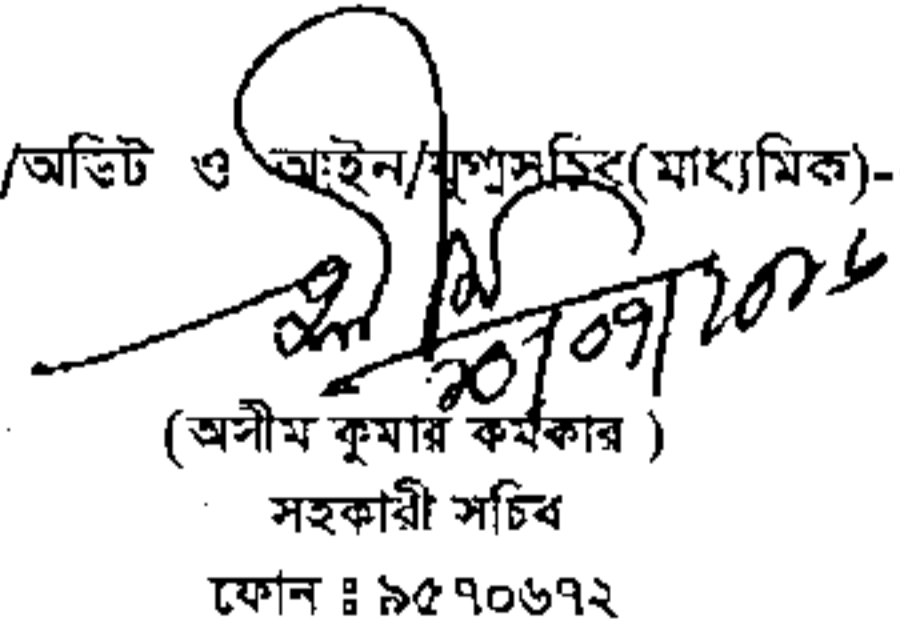 /অডিট ও আইন/যুগ্মসচিব(মাধ্যমিক)-
(অসীম কুমার কর্মকার )
সহকারী সচিব
ফোন ঃ ৯৫৭০৬৭২